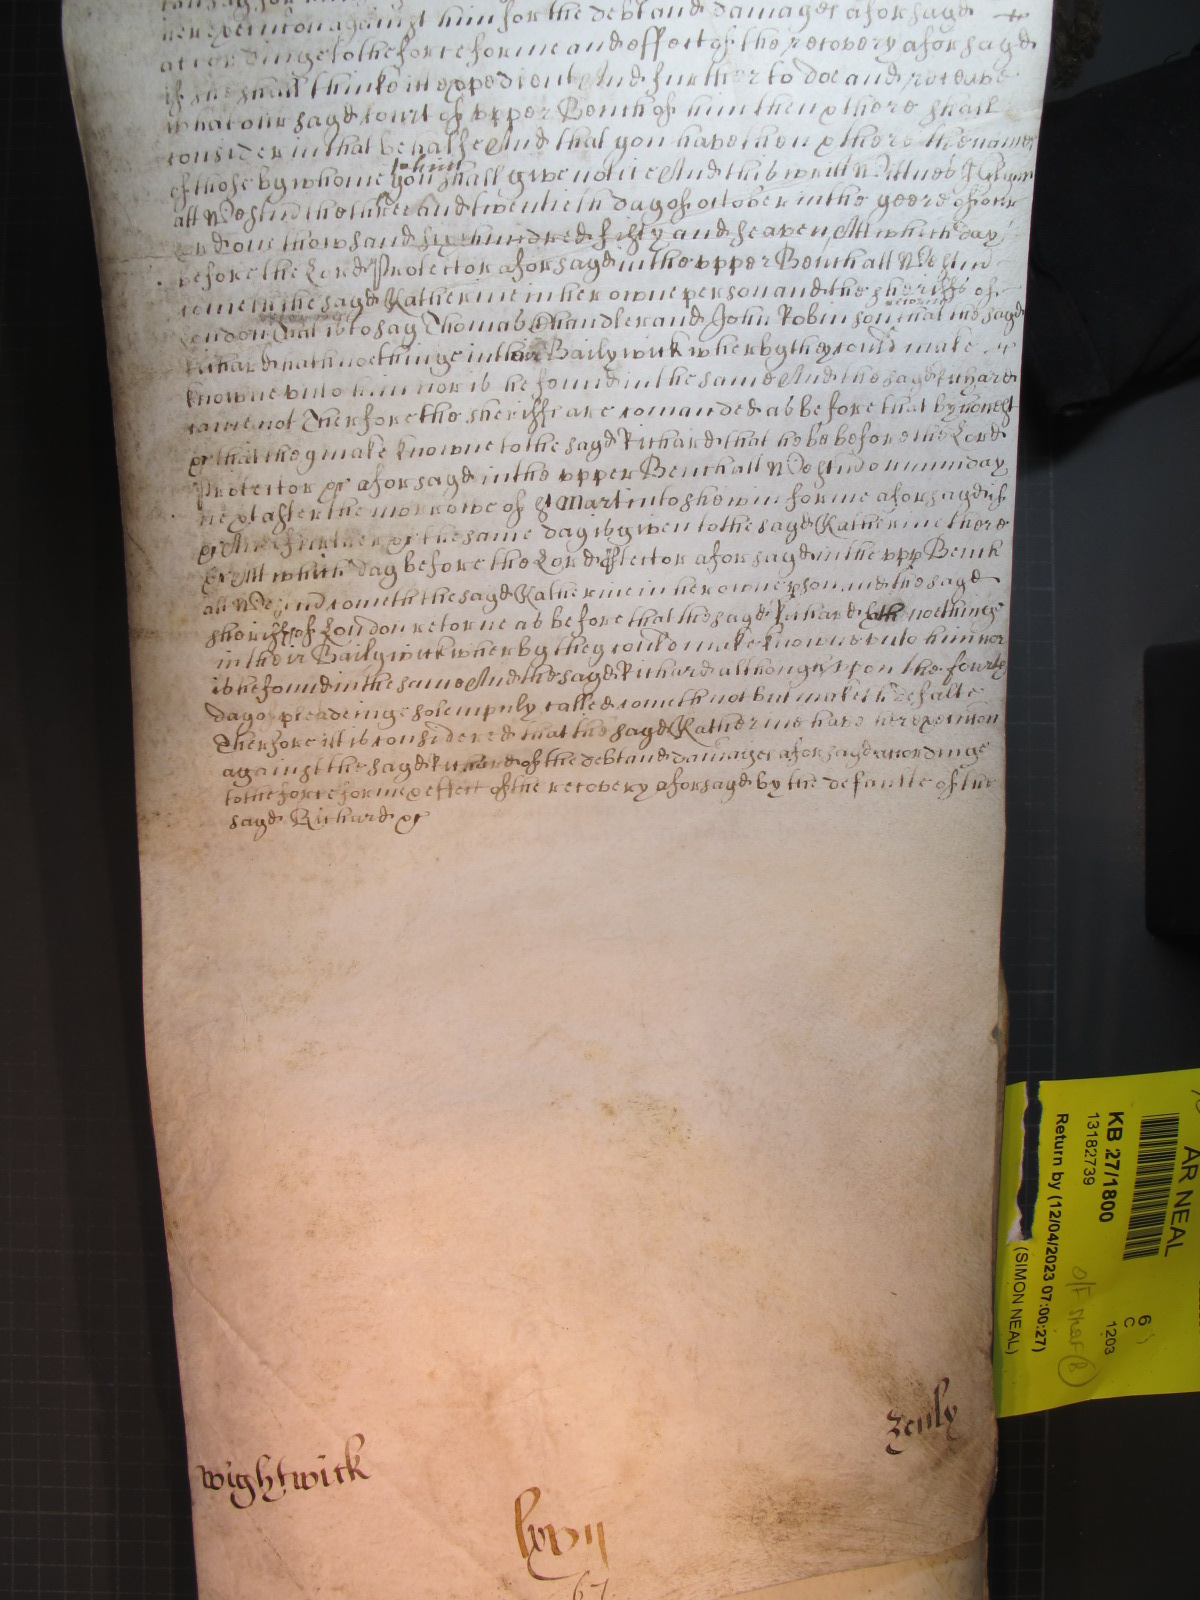 her execution against him for the debt and damages aforsayd
accordinge to the force forme and effect of the recovery aforsayd
if she shall thinke itt expedient And further to doe and receave
what our sayd Court of upper Bench of him then & there shall
consider in that behalfe And that you have then & there the names
of those by whome you shall give notice And this writt Wittnes J Glynn
to him
att Westm the three and twentieth day of october in the yeere of our
Lord one thowsand six hundred fifty and seaven Att which day
before the Lord Protector aforsayd in the upper Bench att Westm
cometh the sayd Katherine in her owne person and the sheriffs of
London That is to say Thomas Chandler and John Robinson that the sayd
returne
Richard hath noethinge in their Bailywick wherby they could make
knowne unto him nor is he found in the same And the sayd Richard
came not Therfore the sheriffs are comanded as before that by honest
&c that they make knowne to the sayd Richard that he be before the Lord
Protector &c aforsayd in the upper Bench att Westm on munday
next after the morrowe of St Martin to shew in forme aforsayd if
&c And further &c the same day is given to the sayd Katherine there
&c Att which day before the Lord Protector aforsayd in the upp Bench
att Westm cometh the sayd Katherine in her owne pson and the sayd
sheriffs of London retorne as before that the sayd Richard hath noethinge
in their Bailywick wherby they could make knowne unto him nor
is he found in the same And the sayd Richard although upon the fourth
day of pleadeinge solempnly called cometh not but maketh defalte
Therfore itt is considered that the sayd Katherine have her execution
against the sayd Richard of the debt and damages aforsayd accordinge
to the force forme & effect of the recovery aforsayd by the defaulte of the
sayd Richard &c
Wightwick
zenly
lxvii
67
AR NEAL
KB 27/1800
13182739
6
C
1203
Return by (12/04/2023 07:00:27)
(SIMON NEAL)